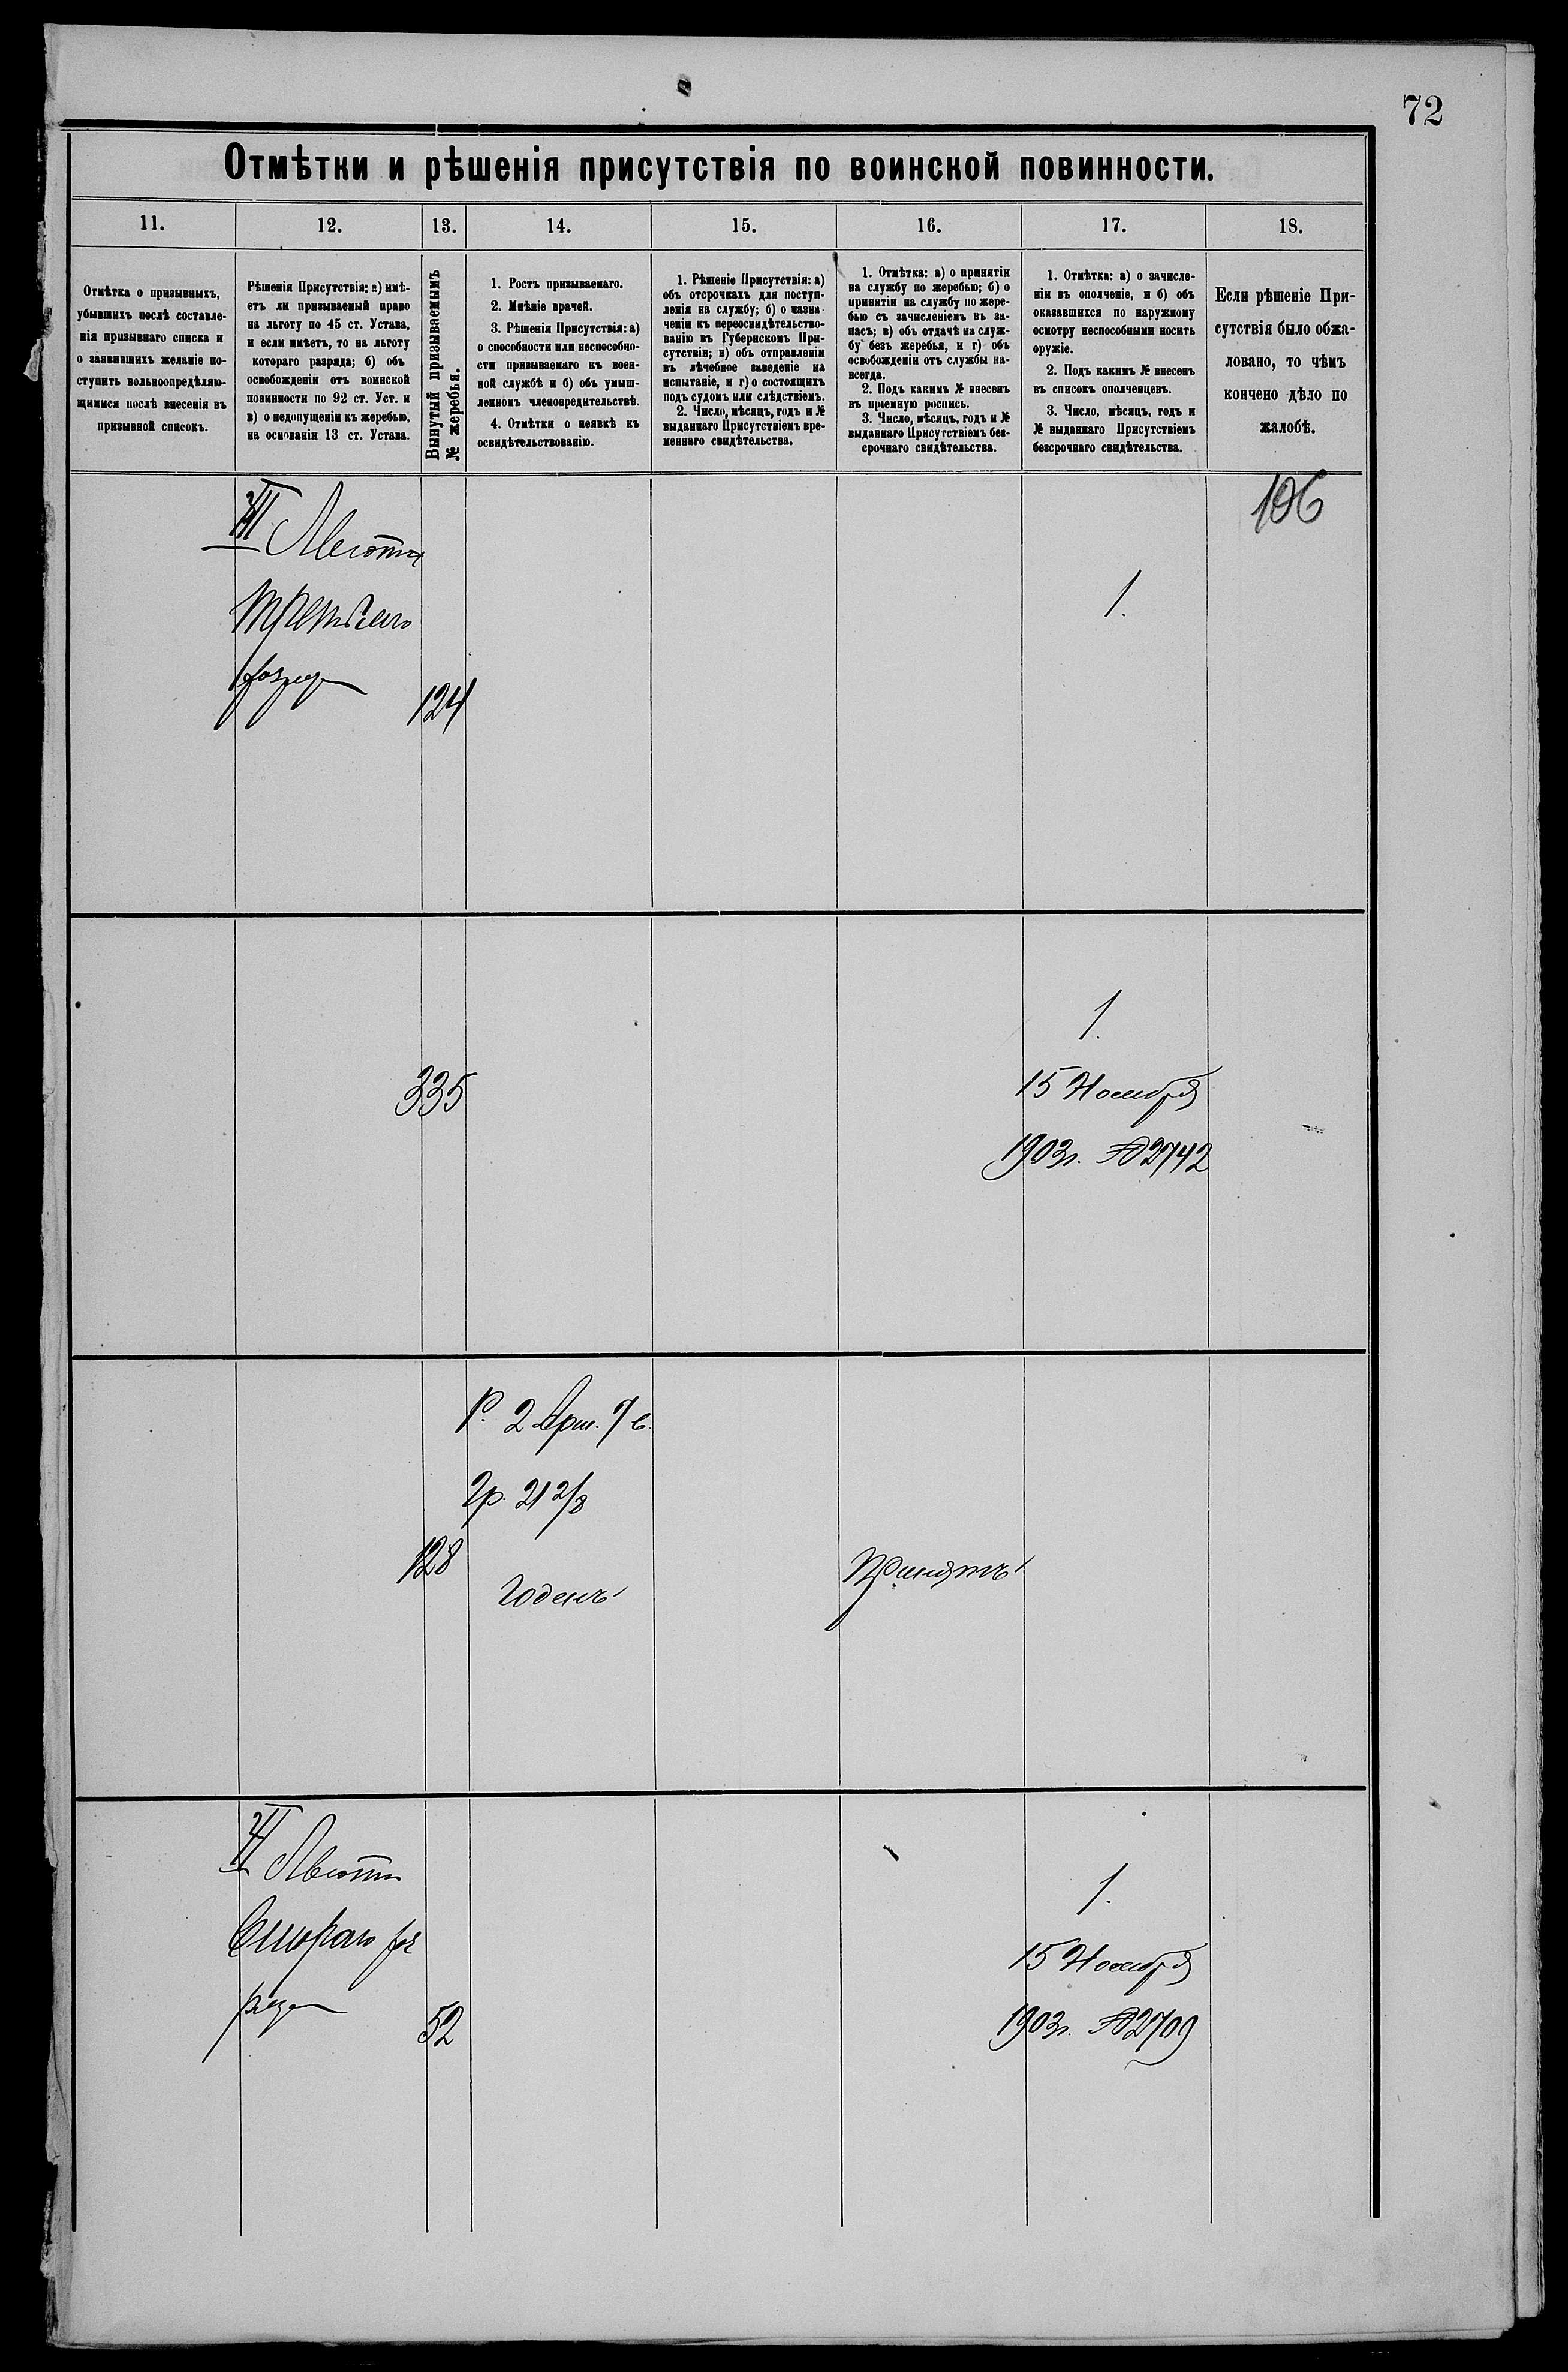 72
Отмѣтки и рѣшенія присутствія по воинской повинности.
11.
12.
13.
14.
15.
16.
17.
18.
Отмѣтка о призывныхъ,
убывшихъ послѣ составле-
нія призывнаго списка и
о заявившихъ желаніе по-
ступить вольноопредѣляю-
щимися послѣ внесенія въ
призывной списокъ.
Рѣшенія Присутствія: а) имѣ-
етъ ли призываемый право
на льготу по 45 ст. Устава,
и если имѣетъ, то на льготу
котораго разряда; б) объ
освобожденіи отъ воинской
повинности по 92 ст. Уст. и
в) о недопущеніи къ жеребью,
на основаніи 13 ст. Устава.
Вынутый призываемымъ
№ жеребья.
1. Ростъ призываемаго.
2. Мнѣніе врачей.
3. Рѣшенія Присутствія: а)
о способности или неспособно-
сти призываемаго къ воен-
ной службѣ и б) объ умыш-
ленномъ членовредительствѣ.
4. Отмѣтки о неявкѣ къ
освидѣтельствованію.
1. Рѣшеніе Присутствія: а)
объ отсрочкахъ для поступ-
ленія на службу; б) о назна-
ченіи къ переосвидѣтельство-
ванію въ Губернскомъ При-
сутствіи; в) объ отправленіи
въ лѣчебное заведеніе на
испытаніе, и г) о состоящихъ
подъ судомъ или слѣдствіемъ.
2. Число, мѣсяцъ, годъ и №
выданнаго Присутствіемъ вре-
меннаго свидѣтельства.
1. Отмѣтка: а) о принятіи
на службу по жеребью; б) о
принятіи на службу по жере-
бью съ зачисленіемъ въ за-
пасъ; в) объ отдачѣ на служ-
бу безъ жеребья, и г) объ
освобожденіи отъ службы на-
всегда.
2. Подъ какимъ № внесенъ
въ пріемную роспись.
3. Число, мѣсяцъ, годъ и №
выданнаго Присутствіемъ без-
срочнаго свидѣтельства.
1. Отмѣтка: а) о зачисле-
ніи въ ополченіе, и б) объ
оказавшихся по наружному
осмотру неспособными носить
оружіе.
2. Подъ какимъ № внесенъ
въ списокъ ополченцевъ.
3. Число, мѣсяцъ, годъ и
№ выданнаго Присутствіемъ
безсрочнаго свидѣтельства.
Если рѣшеніе При-
сутствія было обжа-
ловано, то чѣмъ
кончено дѣло по
жалобѣ.
III Льгота
третьяго
разряда
124
1.
106
335
1.
15 Ноября
1903 г. № 2742
128
Р. 2 арш. 7 в.
Гр. 21 2/8
Годенъ
Принятъ
II Льгота
Второго раз
ряда
52
1.
15 Ноября
1903 г. № 2709